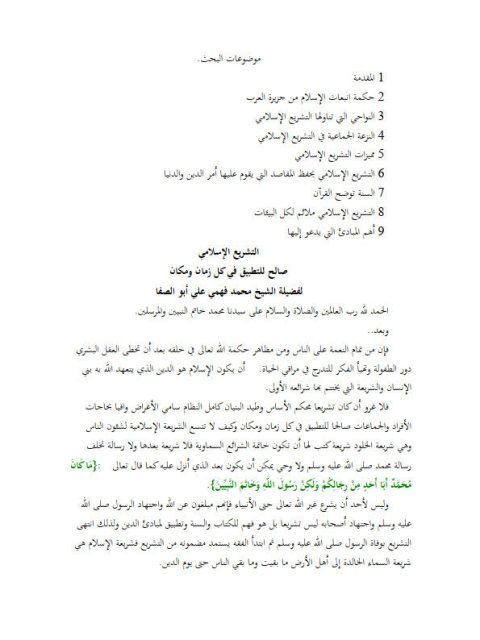 موضوعات البحث.
1 المقدمة
2 حكمة انبعاث الإسلام من جزيرة العرب
3 النواحي التي تناولها التشريع الإسلامي
4 النزعة الجماعية في التشريع الإسلامي
5 مميزات التشريع الإسلامي
6 التشريع الإسلامي يحفظ المقاصد التي يقوم عليها أمر الدين والدنيا
7 السنة توضح القرآن
8 التشريع الإسلامي ملائم لكل البيئات
9 أهم المبادئ التي يدعو إليها
التشريع الإسلامي
صالح للتطبيق في كل زمان ومكان
لفضيلة الشيخ محمد فهمي علي أبو الصفا
الحمد لله رب العالمين والصلاة والسلام على سيدنا محمد خاتم النبيين والمرسلين.
وبعد..
فإن من تمام النعمة على الناس ومن مظاهر حكمة الله تعالى في خلقه بعد أن تخطى العقل البشري
دور الطفولة وتهيأ الفكر للتدرج في مراقي الحياة. أن يكون الإسلام هو الدين الذي يتعهد الله به بني
الإنسان والشريعة التي يختتم بها شرائعه الأولى.
فلا غرو أن كان تشريعا محكم الأساس وطيد البنيان كامل النظام سامي الأغراض وافيا بحاجات
الأفراد والجماعات صالحا للتطبيق في كل زمان ومكان وكيف لا تتسع الشريعة الإسلامية لشئون الناس
وهي شريعة الخلود شريعة كتب لها أن تكون خاتمة الشرائع السماوية فلا شريعة بعدها ولا رسالة تخلف
رسالة محمد صلى الله عليه وسلم ولا وحي يمكن أن يكون بعد الذي أنزل عليه كما قال تعالى :{مَا كَانَ
مُحَمَّدٌ أَبَا أَحَدٍ مِنْ رِجَالِكُمْ وَلَكِنْ رَسُولَ اللَّهِ وَخَاتَمَ النَّبِيِّينَ}.
وليس لأحد أن يشرع غير الله تعالى حتى الأنبياء فإنهم مبلغون عن الله واجتهاد الرسول صلى الله
عليه وسلم واجتهاد أصحابه ليس تشريعا بل هو فهم للكتاب والسنة وتطبيق لمبادئ الدين ولذلك انتهى
التشريع بوفاة الرسول صلى الله عليه وسلم ثم ابتدأ الفقه يستمد مضمونه من التشريع فشريعة الإسلام هي
شريعة السماء الخالدة إلى أهل الأرض ما بقيت وما بقي الناس حتى يوم الدين.